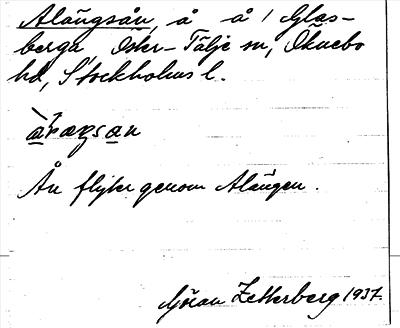 Alängsån, å å / Glas-
berga, Öster-Tälje sn, Öknebo
hd, Stockholms l.
Ån flyter genom Alängen.
Göran Zetterberg 1937.